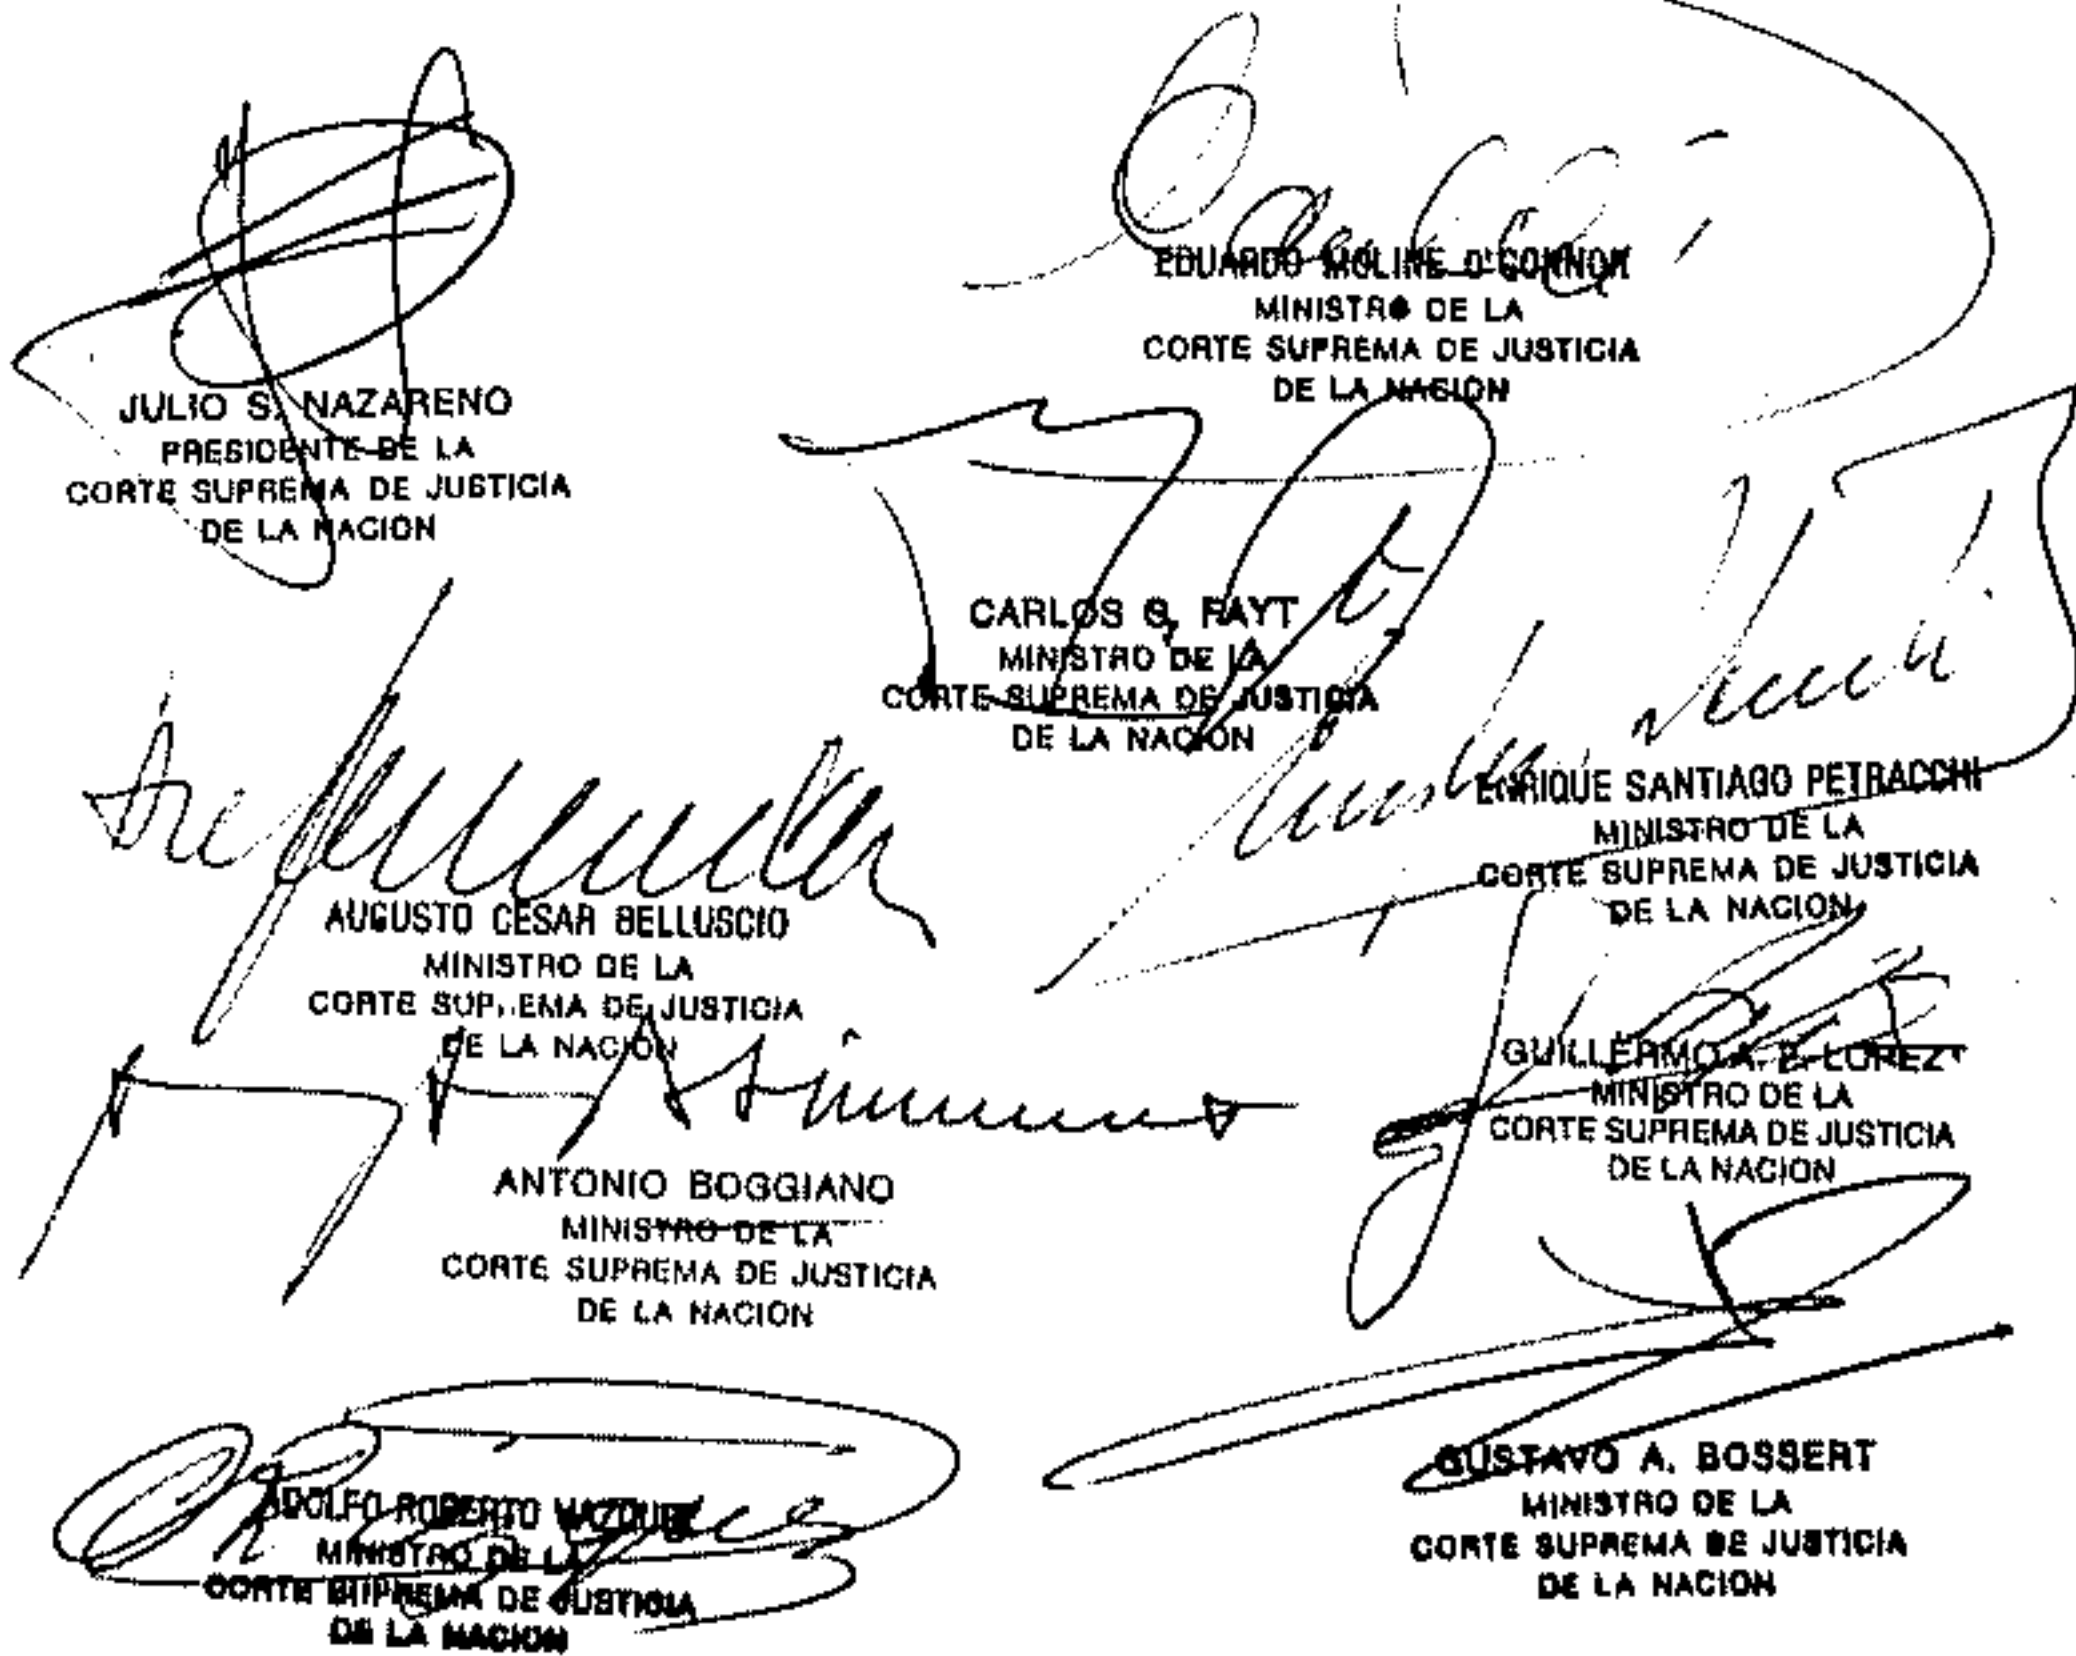 JULIO S. NAZARENO
PRESIDENTE DE LA
CORTE SUPREMA DE JUSTICIA
DE LA NACION
EDUARDO MOLINE O'CONNOR
MINISTRO DE LA
CORTE SUPREMA DE JUSTICIA
DE LA NACION
CARLOS S. FAYT
MINISTRO DE LA
CORTE SUPREMA DE JUSTICIA
DE LA NACION
AUGUSTO CESAR BELLUSCIO
MINISTRO DE LA
CORTE SUPREMA DE JUSTICIA
DE LA NACION
ENRIQUE SANTIAGO PETRACCHI
MINISTRO DE LA
CORTE SUPREMA DE JUSTICIA
DE LA NACION
ANTONIO BOGGIANO
MINISTRO DE LA
CORTE SUPREMA DE JUSTICIA
DE LA NACION
GUILLERMO A. F. LOPEZ
MINISTRO DE LA
CORTE SUPREMA DE JUSTICIA
DE LA NACION
ADOLFO ROBERTO VAZQUEZ
MINISTRO DE LA
CORTE SUPREMA DE JUSTICIA
DE LA NACION
GUSTAVO A. BOSSERT
MINISTRO DE LA
CORTE SUPREMA DE JUSTICIA
DE LA NACION